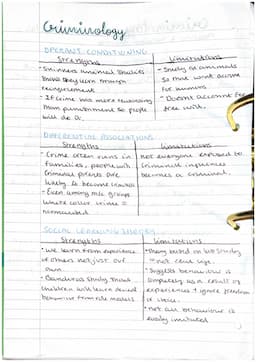 Criminology
OPERANT CONDITIONING
Strengths
- Skinners animal studies
show they learn through
reinforcement
- If crime has more rewarding
than punishment so people
will do it.
Limitations
- Study on animals
so that wont account
for humans
- Doesnt account for
free will.
DIFFERENTIAL ASSOCIATIONS
Strengths
- Crime often runs in
families, people with
criminal parents are
likely to become
- Even among
where collar crime is
Limitations
Not everyone exposed to
criminal influences
becomes a criminal.
SOCIAL LEARNING THEORY
Strengths
- we learn from experience
of others not just our
own
- Banduras study shows
children will learn
behaviour from role models
Limitations
- Theory based on lab study
behaviour is
completely as a result of
experiences + ignore freedom
of choice.
- not all behaviour is
easily imitated